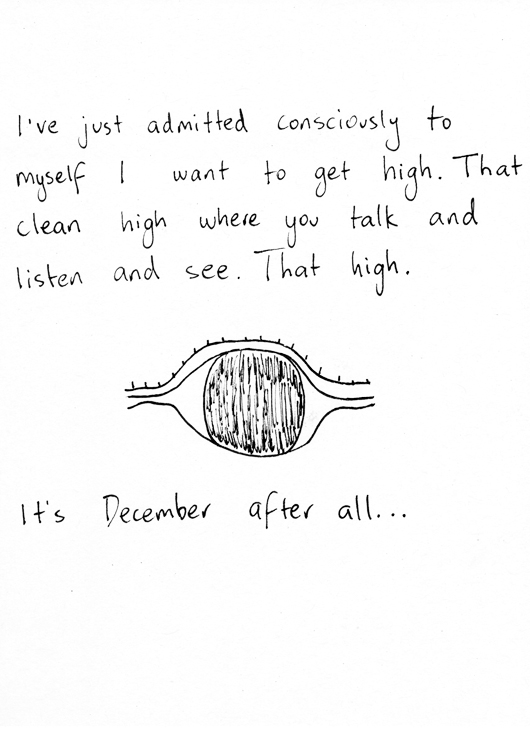 I've just admitted consciously to
myself I want to get high. That
clean high where you talk and
listen and see. That high.
It's December after all...